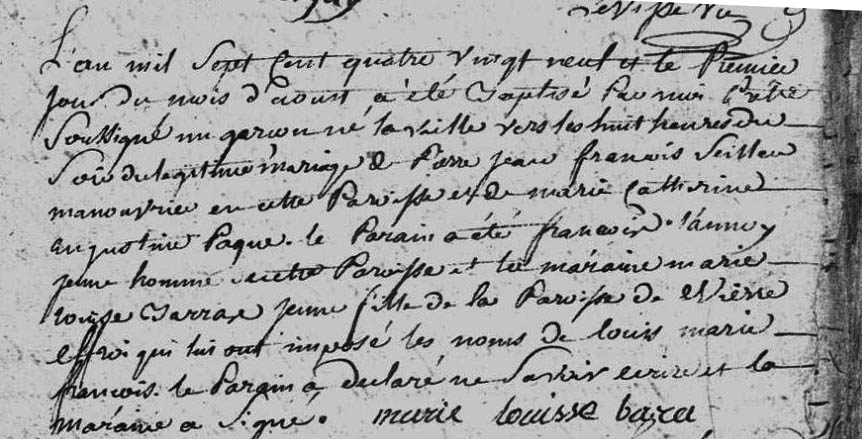 L'an mil sept cent quatre vingt neuf et le premier
jour du mois d'aoust a été baptisé par moi
soussigné un garçon né la veille vers les huit heures du
soir du legitime mariage de Pierre jean françois
manouvrier en cette Paroisse et de marie Catherine
augustine Paque. le Parain a été françois
jeune homme de cette Paroisse et la maraine marie
louise jeune fille de la Paroisse de
qui lui ont imposé les noms de louis marie
françois. le Parain a declaré ne savoir ecrire et la
maraine a signé. marie louisse bara